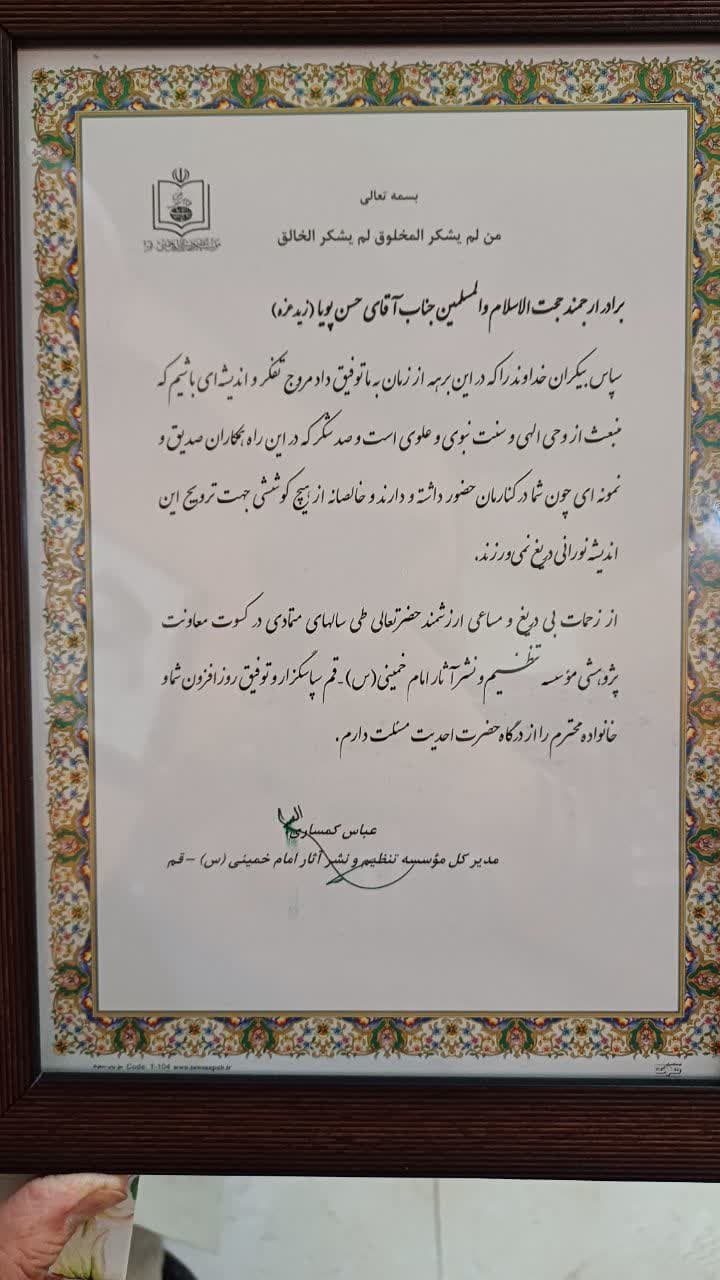 بسمه تعالی
من لم یشکر المخلوق لم یشکر الخالق
برادر ارجمند حجت الاسلام والمسلمین جناب آقای حسن پویا (زید عزه)
سپاس بیکران خداوند را که در این برهه از زمان به ما توفیق داد مروج تفکر و اندیشه ای باشیم که
منبعث از وحی الهی و سنت نبوی و علوی است و صد شکر که در این راه همکاران صدیق و
نمونه ای چون شما در کنارمان حضور داشته و دارند و خالصانه از هیچ کوششی جهت ترویج این
اندیشه نورانی دریغ نمی ورزند.
از زحمات بی دریغ و مساعی ارزشمند حضرتعالی طی سالهای متمادی در کسوت معاونت
پژوهشی مؤسسه تنظیم و نشر آثار امام خمینی(س)-قم سپاسگزار و توفیق روز افزون شما و
خانواده محترم را از درگاه حضرت احدیت مسئلت دارم.
عباس کمساری
مدیر کل مؤسسه تنظیم و نشر آثار امام خمینی (س) – قم
Code 1-104